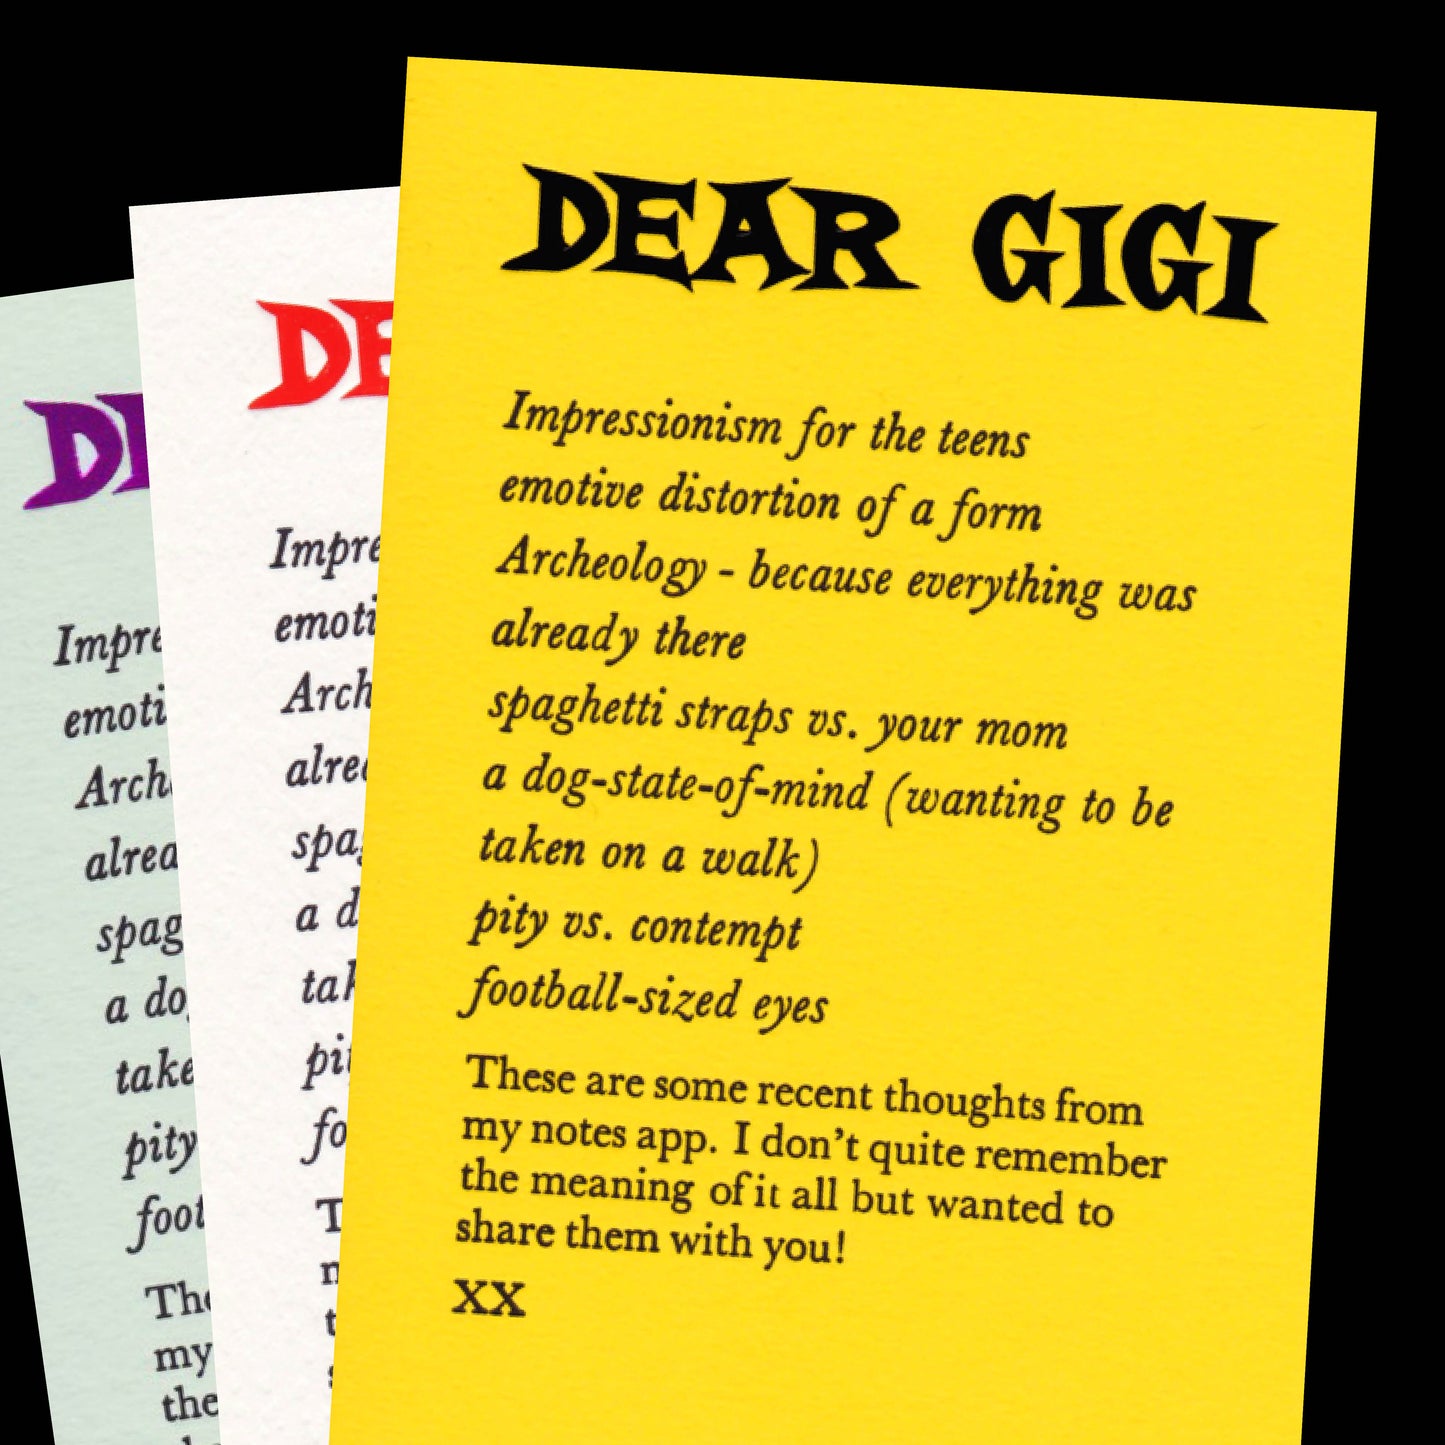 DEAR GIGI
Impressionism for the teens
emotive distortion of a form
Archeology - because everything was
already there
spaghetti straps vs. your mom
a dog-state-of-mind (wanting to be
taken on a walk)
pity vs. contempt
football-sized eyes
These are some recent thoughts from
my notes app. I don't quite remember
the meaning of it all but wanted to
share them with you!
XX
DE
Impre
emoti
Arch
alre
spa
a d
tak
pi
fo
T
m
t
s
DE
Impre
emoti
Arch
alrea
spag
a do
take
pity
foot
The
my
the